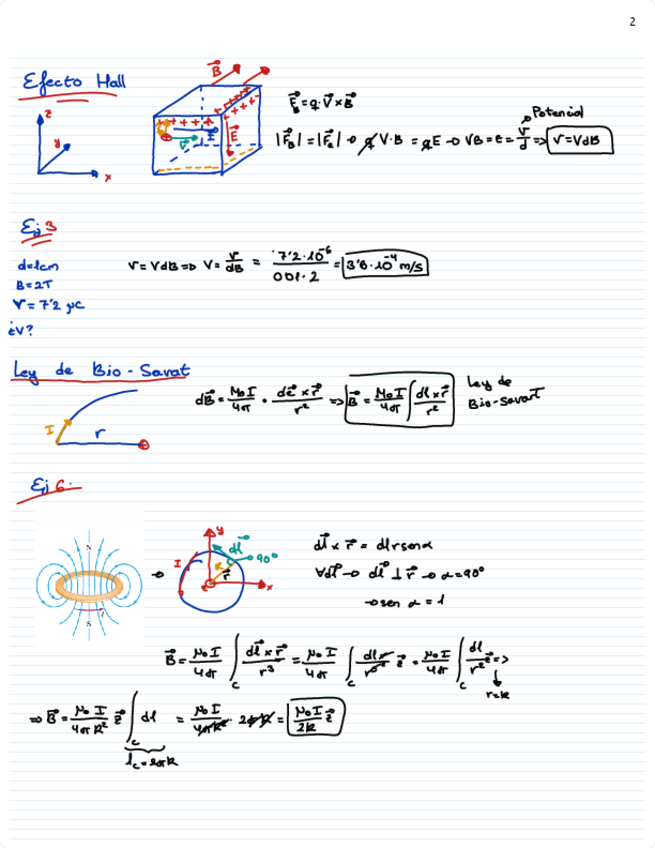 2
Efecto Hall
B⃗
z
y
x
+ + + + + +
v⃗
I
E⃗
F⃗_B = q · V⃗ × B⃗
|F⃗_B| = |F⃗_e| → q V · B = qE → VB = E = V/d ⇒ V = VdB
Potencial
Ej 3
d = 1cm
B = 2T
V = 7'2 μC
¿V?
V = VdB ⇒ V = V/dB = 7'2 · 10⁻⁶ / 0'01 · 2 = 3'6 · 10⁻⁴ m/s
Ley de Bio-Savat
I
r
dB⃗ = μ₀I/4π · dl⃗ × r⃗/r² ⇒ B⃗ = μ₀I/4π ∫ dl × r⃗/r²
Ley de
Bio-Savart
Ej 6.
N
S
I
y
x
dl⃗
90°
R
r⃗
dl⃗ × r⃗ = dl r sen α
∀dl⃗ → dl⃗ ⊥ r⃗ → α = 90°
→ sen α = 1
B⃗ = μ₀I/4π ∫_c dl⃗ × r⃗/r³ = μ₀I/4π ∫_c dl r/r³ z⃗ = μ₀I/4π ∫_c dl/r² z⃗ ⇒
r = R
⇒ B⃗ = μ₀I/4πR² z⃗ ∫_c dl = μ₀I/4πR² · 2πR = μ₀I/2R z⃗
l_c = 2πR